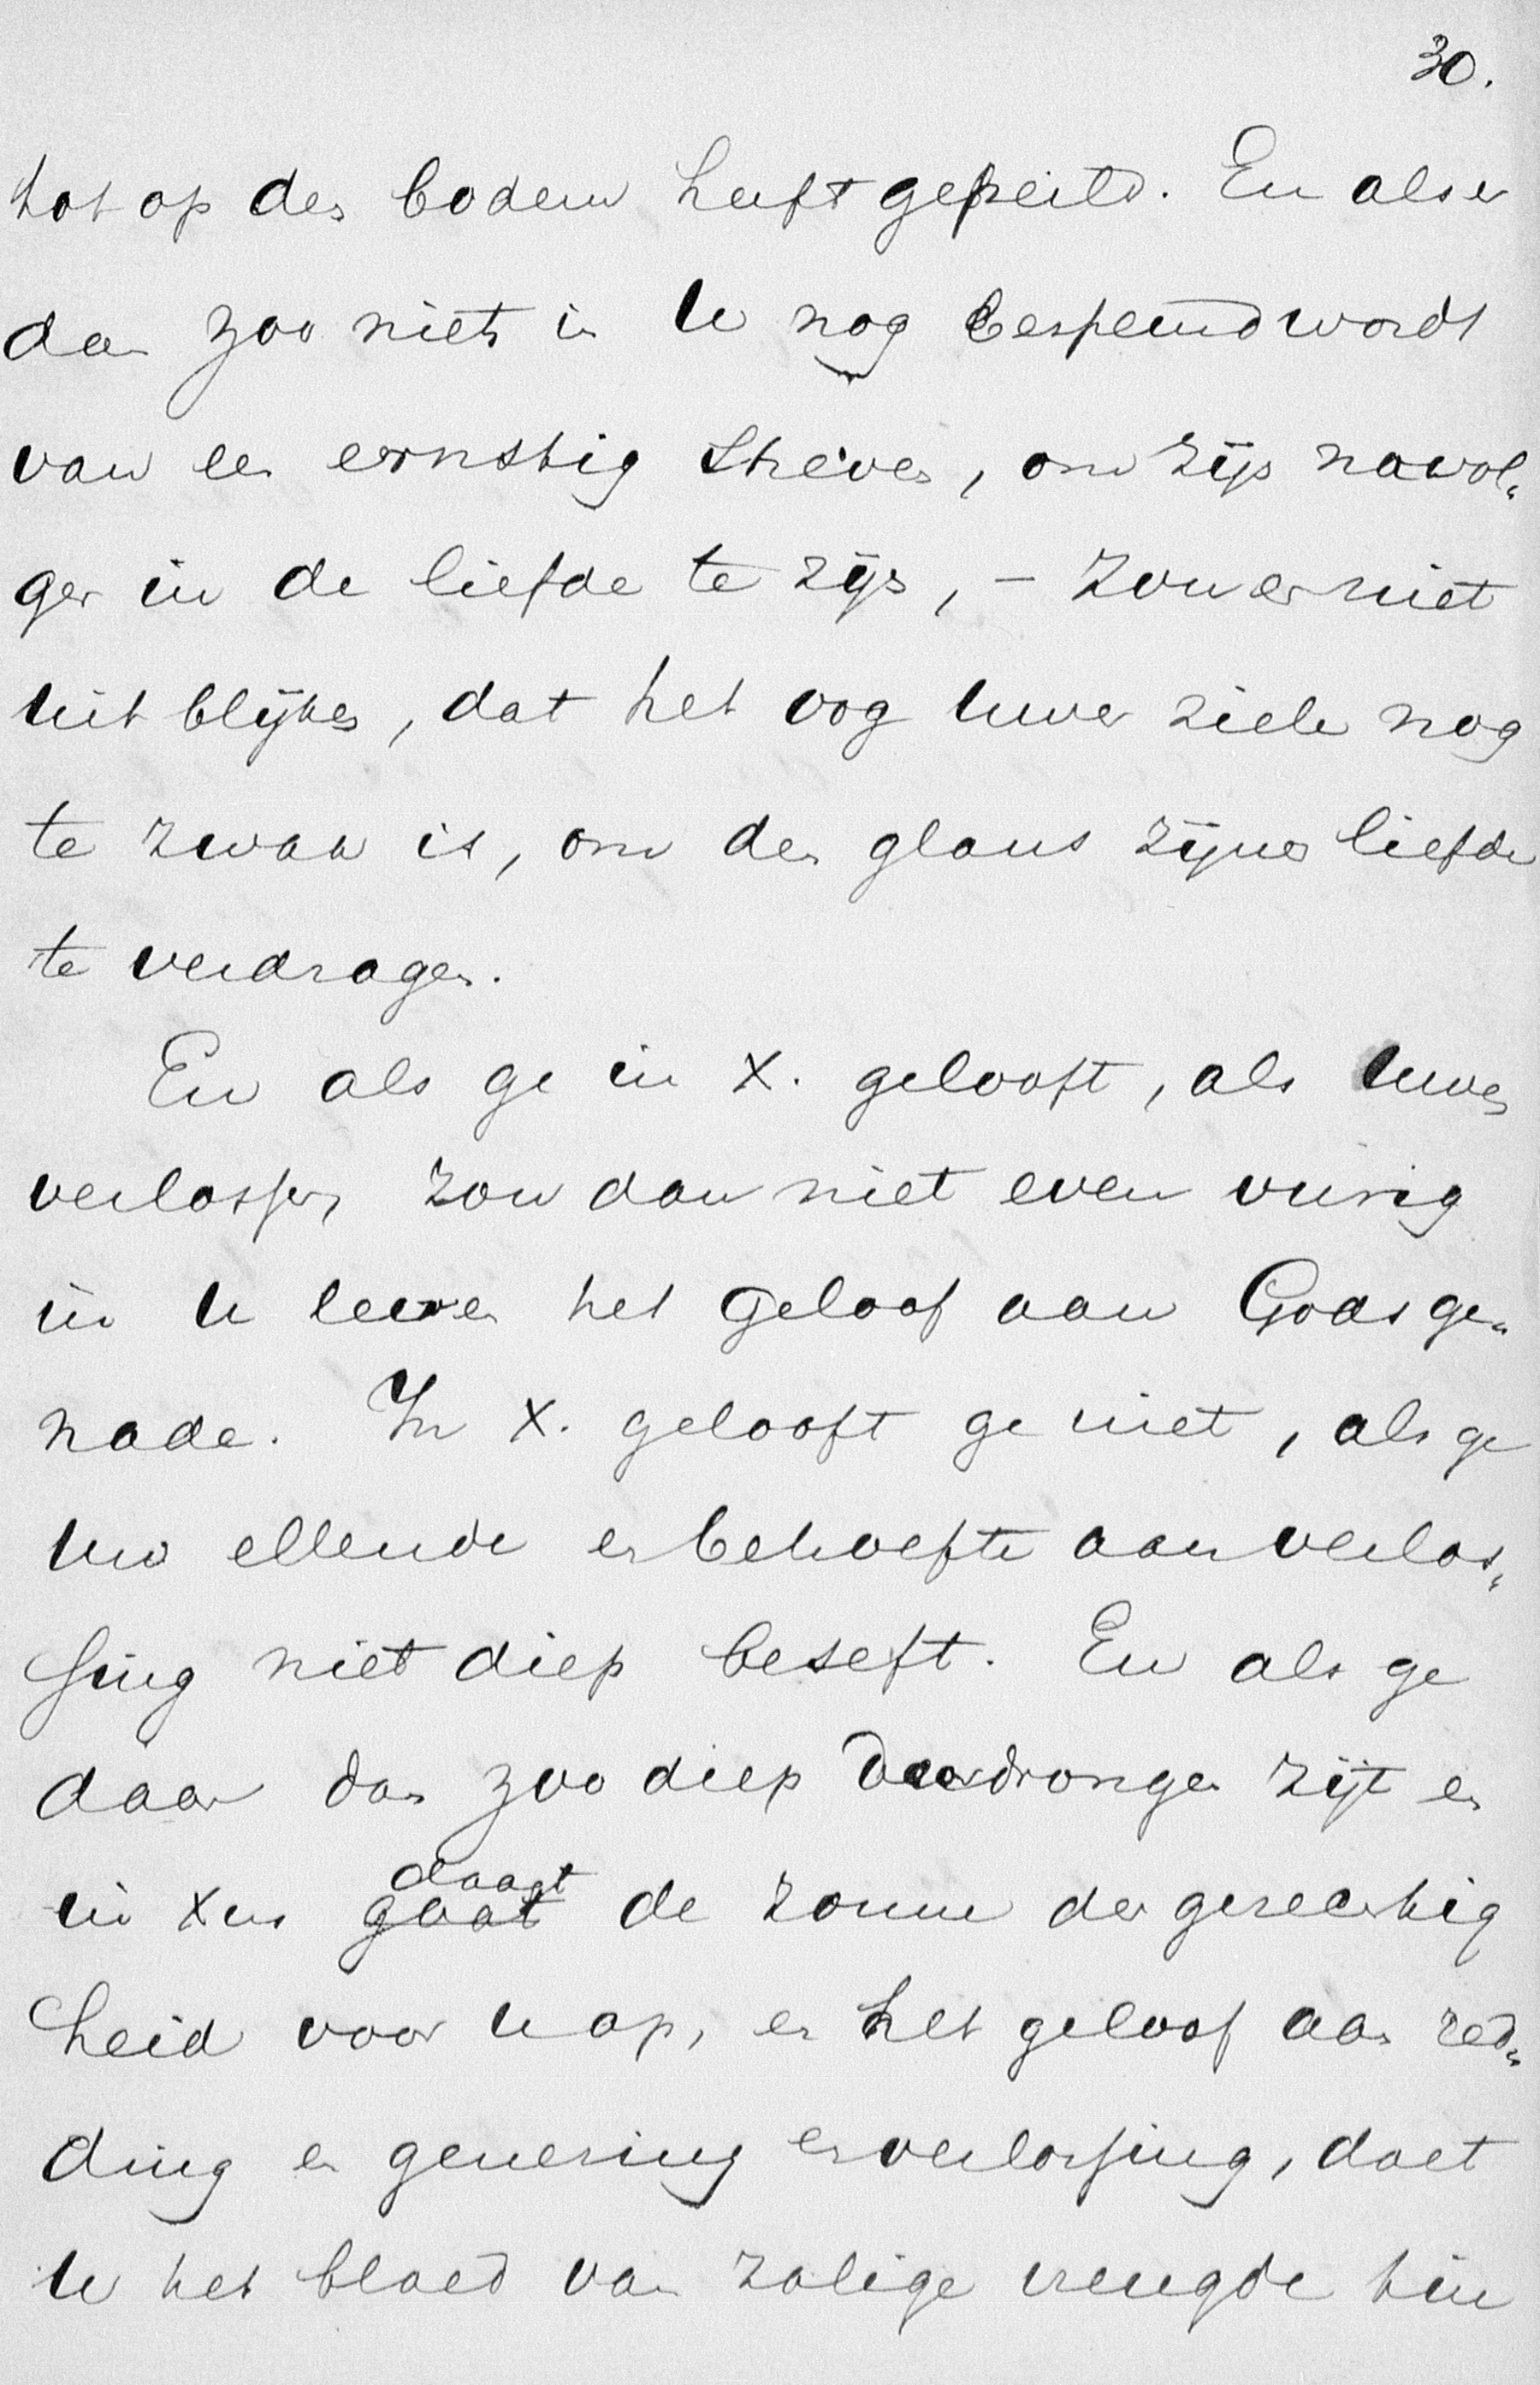 30.
tot op den bodem heeft gepeild. En als er
dan zoo niets in U nog bespeurd wordt
van een ernstig streven, om zijn navol„
ger in de liefde te zijn, – zou er niet
uit blijken, dat het oog uwer ziele nog
te zwak is, om den glans zijner liefde
te verdragen.
En als ge in X. gelooft, als uwen
verlosser, zou dan niet even vurig
in U leven het geloof aan Gods ge„
nade. In X. gelooft ge niet, als ge
uw ellende en behoefte aan verlos„
sing niet diep beseft. En als ge
daar dan zoo diep doordrongen zijt en
daagt
in Xus gaat de zonne der gerechtig
heid voor U op, en het geloof aan red„
ding en genezing en verlossing, doet
U het bloed van zalige vreugde tin